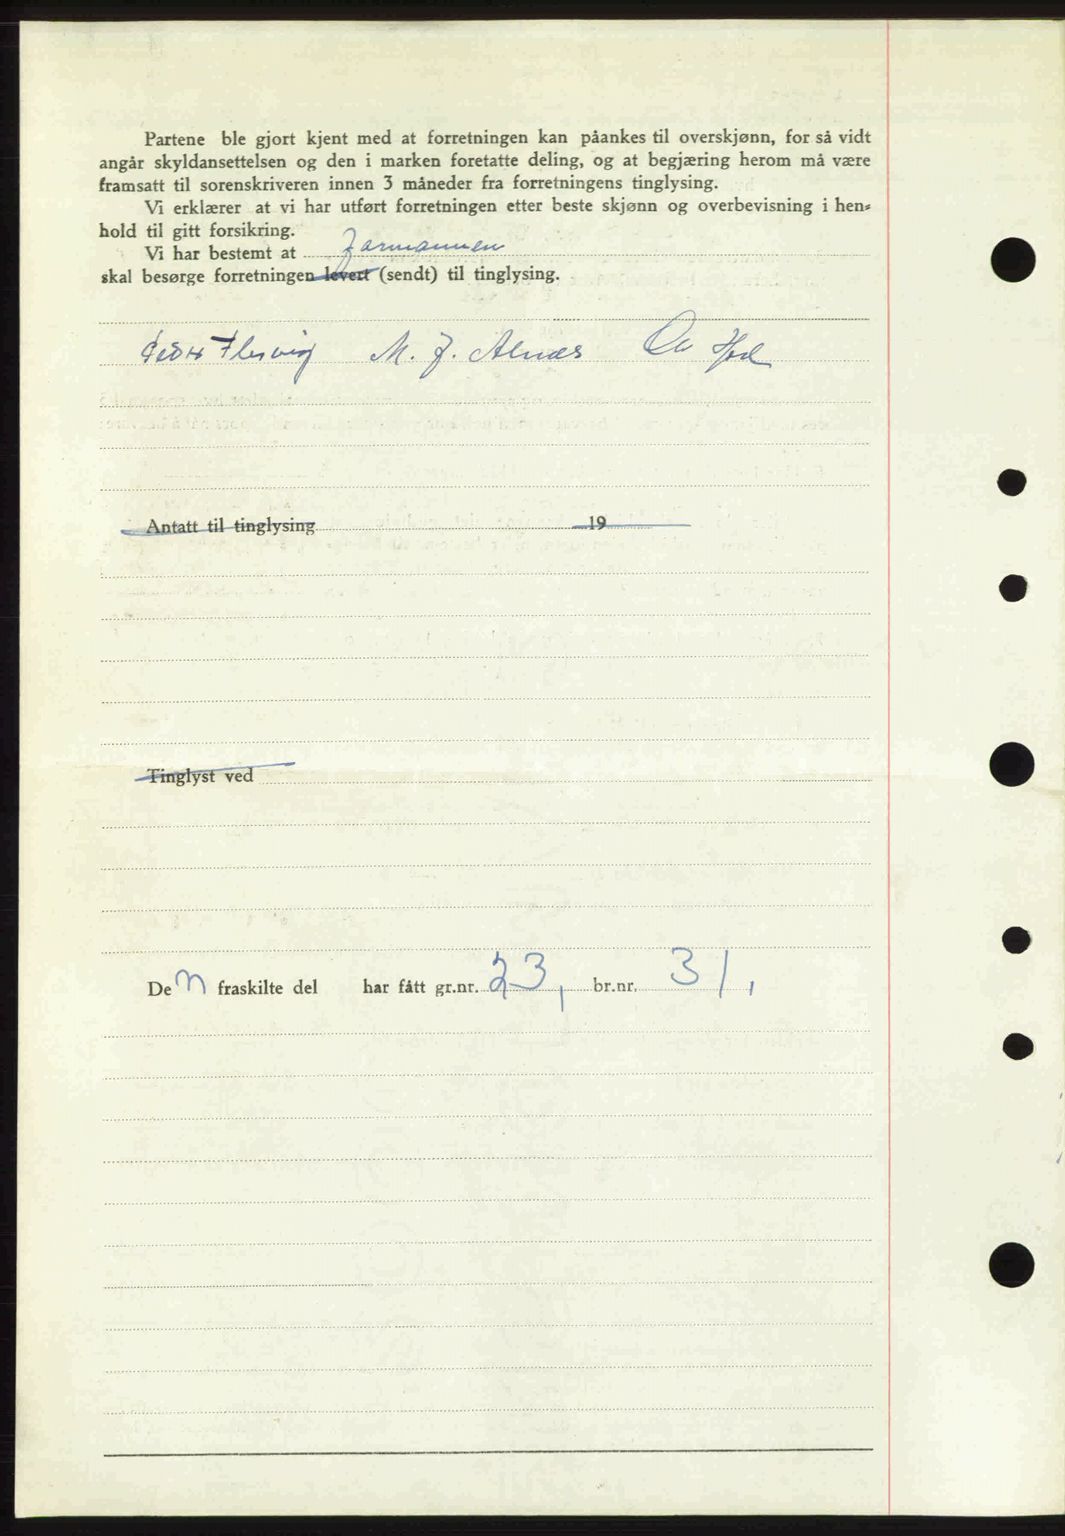 Partene ble gjort kjent med at forretningen kan påankes til overskjønn, for så vidt
angår skyldansettelsen og den i marken foretatte deling, og at begjæring herom må være
framsatt til sorenskriveren innen 3 måneder fra forretningens tinglysing.
Vi erklærer at vi har utført forretningen etter beste skjønn og overbevisning i hen=
hold til gitt forsikring.
Vi har bestemt at formannen
skal besørge forretningen levert (sendt) til tinglysing.
Peder Flesvig M. J. Alnæs
Antatt til tinglysing 19
Tinglyst ved
Den fraskilte del har fått gr.nr. 23, br.nr. 31,